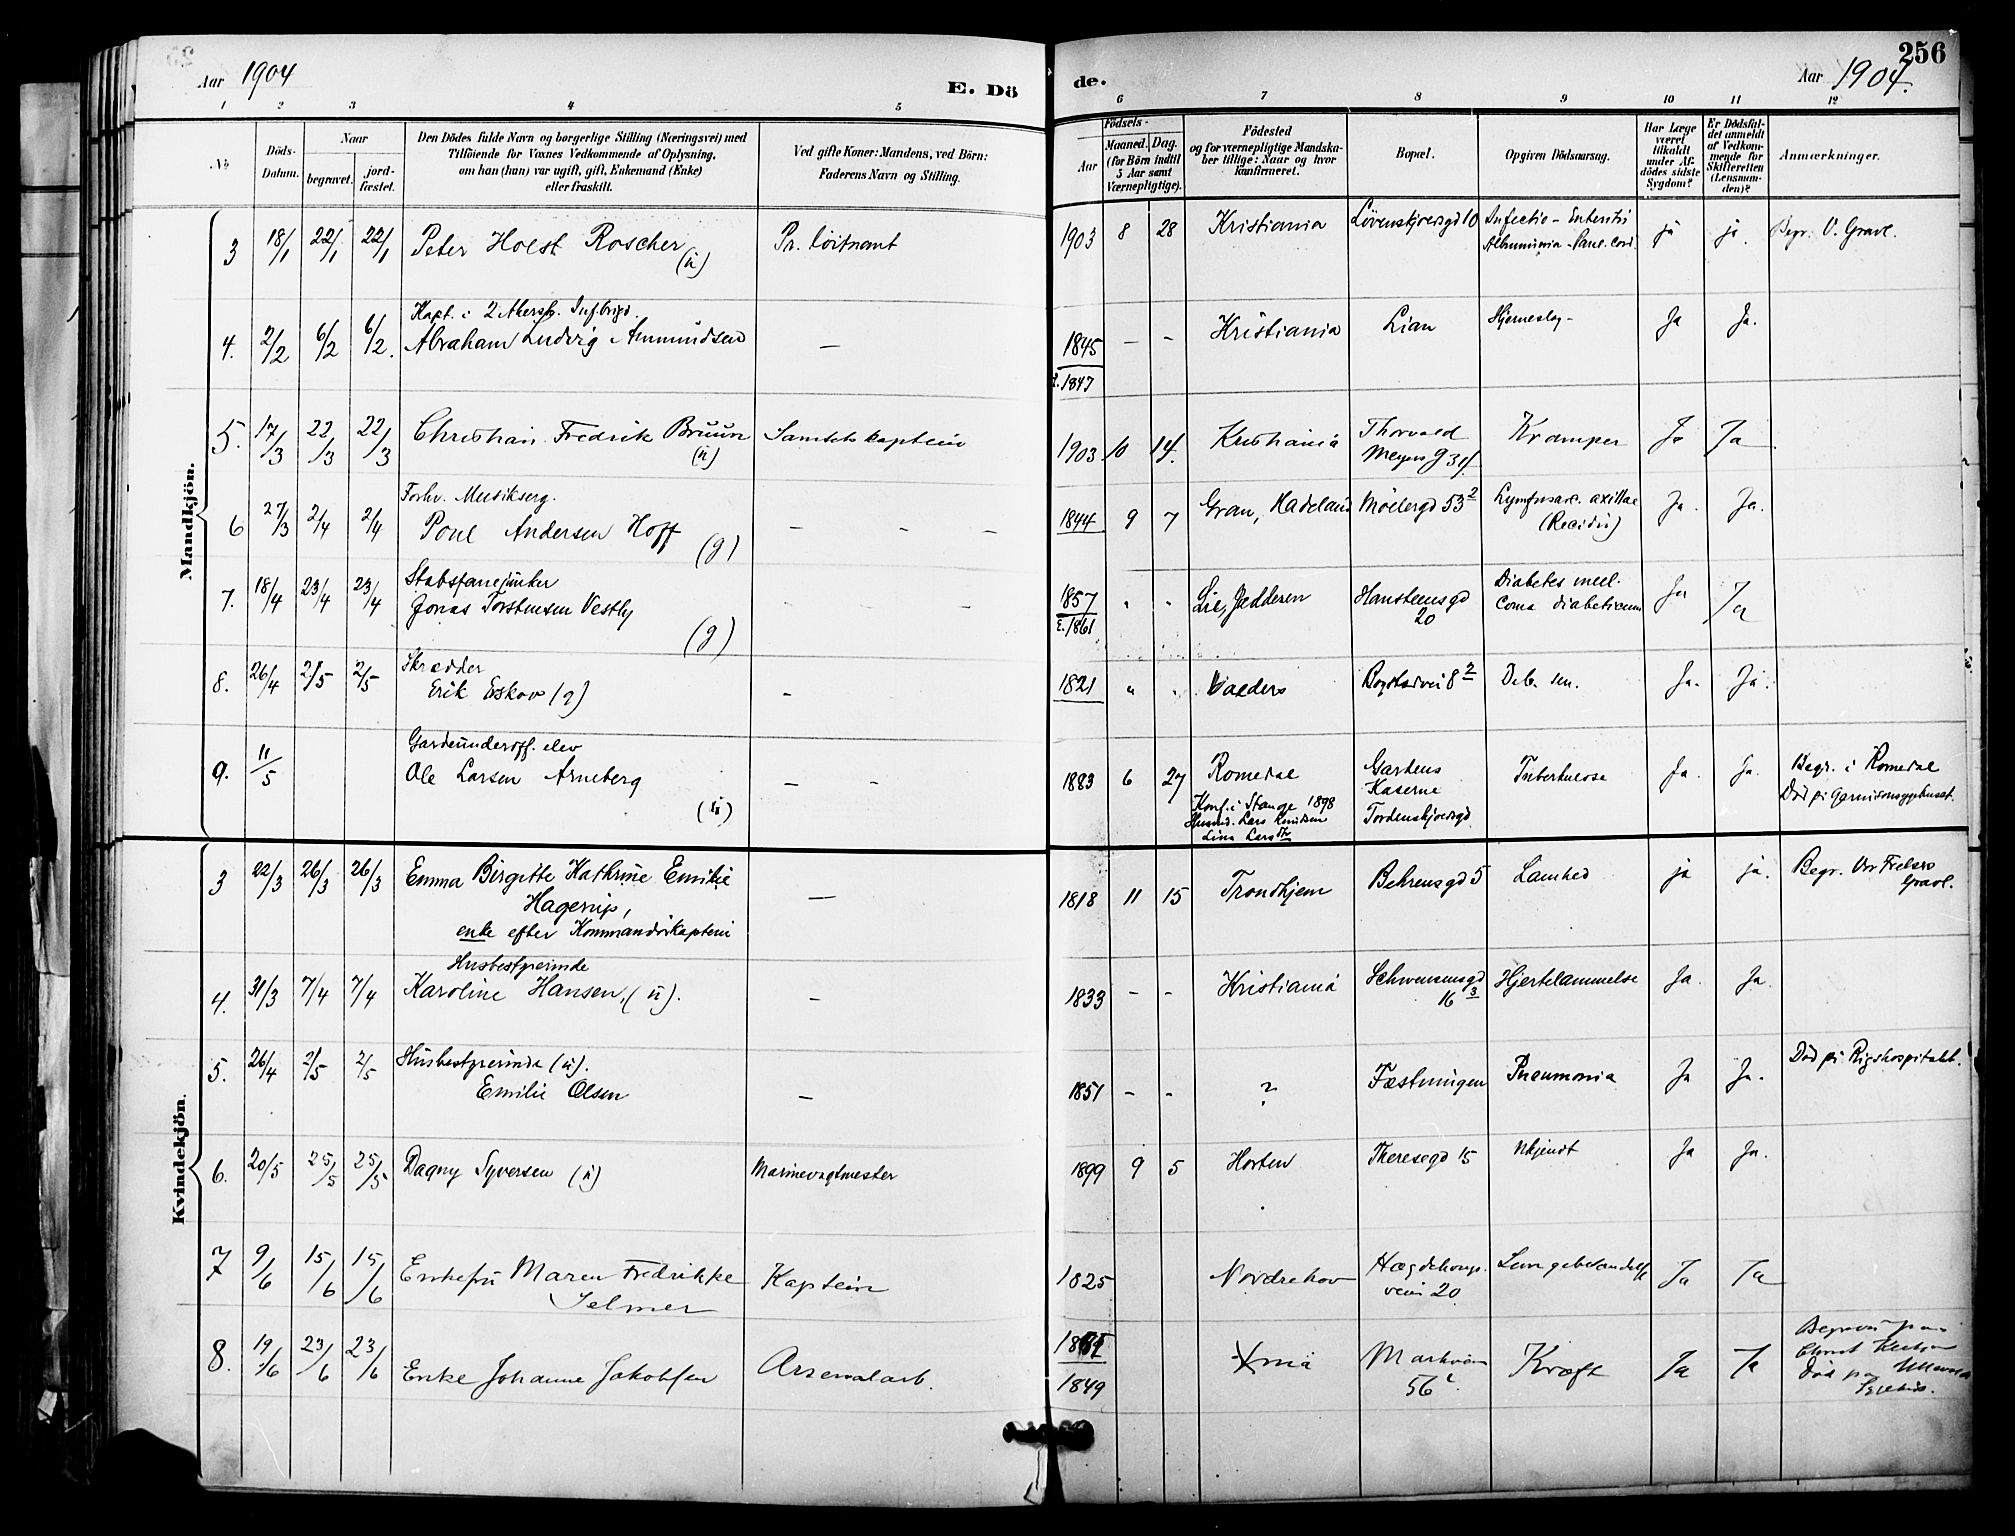 256
Aar 1904
E. Dö
de.
Aar 1904.
1 2 3 4 5 6 7 8 9 10 11 12
No
Döds-
Datum.
Naar
begravet.
jord-
fæstet.
Den Dödes fulde Navn og borgerlige Stilling (Næringsvei) med
Tilföiende for Voxnes Vedkommende af Oplysning,
om han (hun) var ugift, gift, Enkemand (Enke)
eller fraskilt.
Ved gifte Koner: Mandens, ved Börn:
Faderens Navn og Stilling.
Födsels-
Aar
Maaned. Dag.
(for Börn indtil
5 Aar samt
Værnepligtige).
Födested
og for værnepligtige Mandska-
ber tillige: Naar og hvor
konfirmeret.
Bopæl.
Opgiven Dödsaarsag.
Har Læge
været
tilkaldt
under Af-
dödes sidste
Sygdom?
Er Dödsfal-
det anmeldt
af Vedkom-
mende for
Skifteretten
(Lensman-
den)?
Anmærkninger.
Mandkjön.
3 18/1 22/1 22/1 Peter Holst Roscher (u) Pr. løitnant 1903 8 28 Kristiania Løvenskjoldsgd 10 Infectio - Enteritis
Albuminuria - Paral. Cord. ja ja. Begr. V. Gravl.
4. 2/2 6/2 6/2. Kapt. i 2 Akersh. Inf.brigd.
Abraham Ludvig Ammundsen — 1845 — - Kristiania Lian Hjerneslag - Ja Ja.
1847
5. 17/3 22/3 22/3 Christian Fredrik Bruun (u) Samlets kaptein 1903 10 14. Kristiania Thorvald
Meyers g 34 Kramper Ja Ja
6 27/3 2/4 2/4 Forhv. Musikserg.
Poul Andersen Hoff (g) — - - 1844 9 7 Gran, Hadeland Møllergd 53² Lymfosarc. axillae
(Recidiv) Ja. Ja.
7. 18/4 23/4 23/4 Stabsfanejunker
Jonas Torstensen Vestly (g) - - - 1857 " " Lie, Jædderen Hansteensgd
20 Diabetes mell.
Coma diabeticum Ja Ja
1861
8. 26/4 2/5 2/5 Skrædder
Erik Eskov (g) - 1821 " " Valders Bogstadvei 8² Deb. sen. Ja. Ja.
9. 11/5 Gardeunderoff. elev
Ole Larsen Arneberg (u) — - 1883 6 27 Romedal
Konf. i Stange 1898
Husmd. Lars Knudsen
Lina Larsdtr Gardens
Kaserne
Tordenskjoldsgd Tuberkulose Ja. Ja. Begr. i Romedal
Død på Garnisonssygehuset.
Kvindekjön.
3 22/3 26/3 26/3 Emma Birgitte Kathrine Emilie
Hagerup,
enke efter Kommandørkaptein — 1818 11 15 Trondhjem Behrensgd 5 Lamhed ja ja. Begr. Vor Frelsers
Gravl.
4. 31/3 7/4 7/4 Husbestyrerinde
Karoline Hansen. (u). — 1833 - - Kristiania Schwensensgd
16 3 Hjertelammelse Ja. Ja.
5. 26/4 2/5 2/5 Husbestyrerinde (u).
Emilie Olsen — 1851 - - ? Fæstningen Pneumonia Ja Ja. Død på Rigshospitalet.
6. 20/5 25/5 25/5 Dagny Syversen (u) Marinevagtmester 1899 9 5 Horten Theresegd 15 Ukjendt Ja Ja.
7 9/6 15/6 15/6 Enkefru Maren Fredrikke
Selmer Kaptein 1825 Nordrehov Hægdehaugs.
veien 20 Lungebetændelse Ja Ja
8. 19/6 23/6 23/6 Enke Johanne Jakobsen Arsenalarb. Xnia Markvei
56 Kræft Ja Ja Begravet på
Død på Ullevaal
Sygehus.
1849